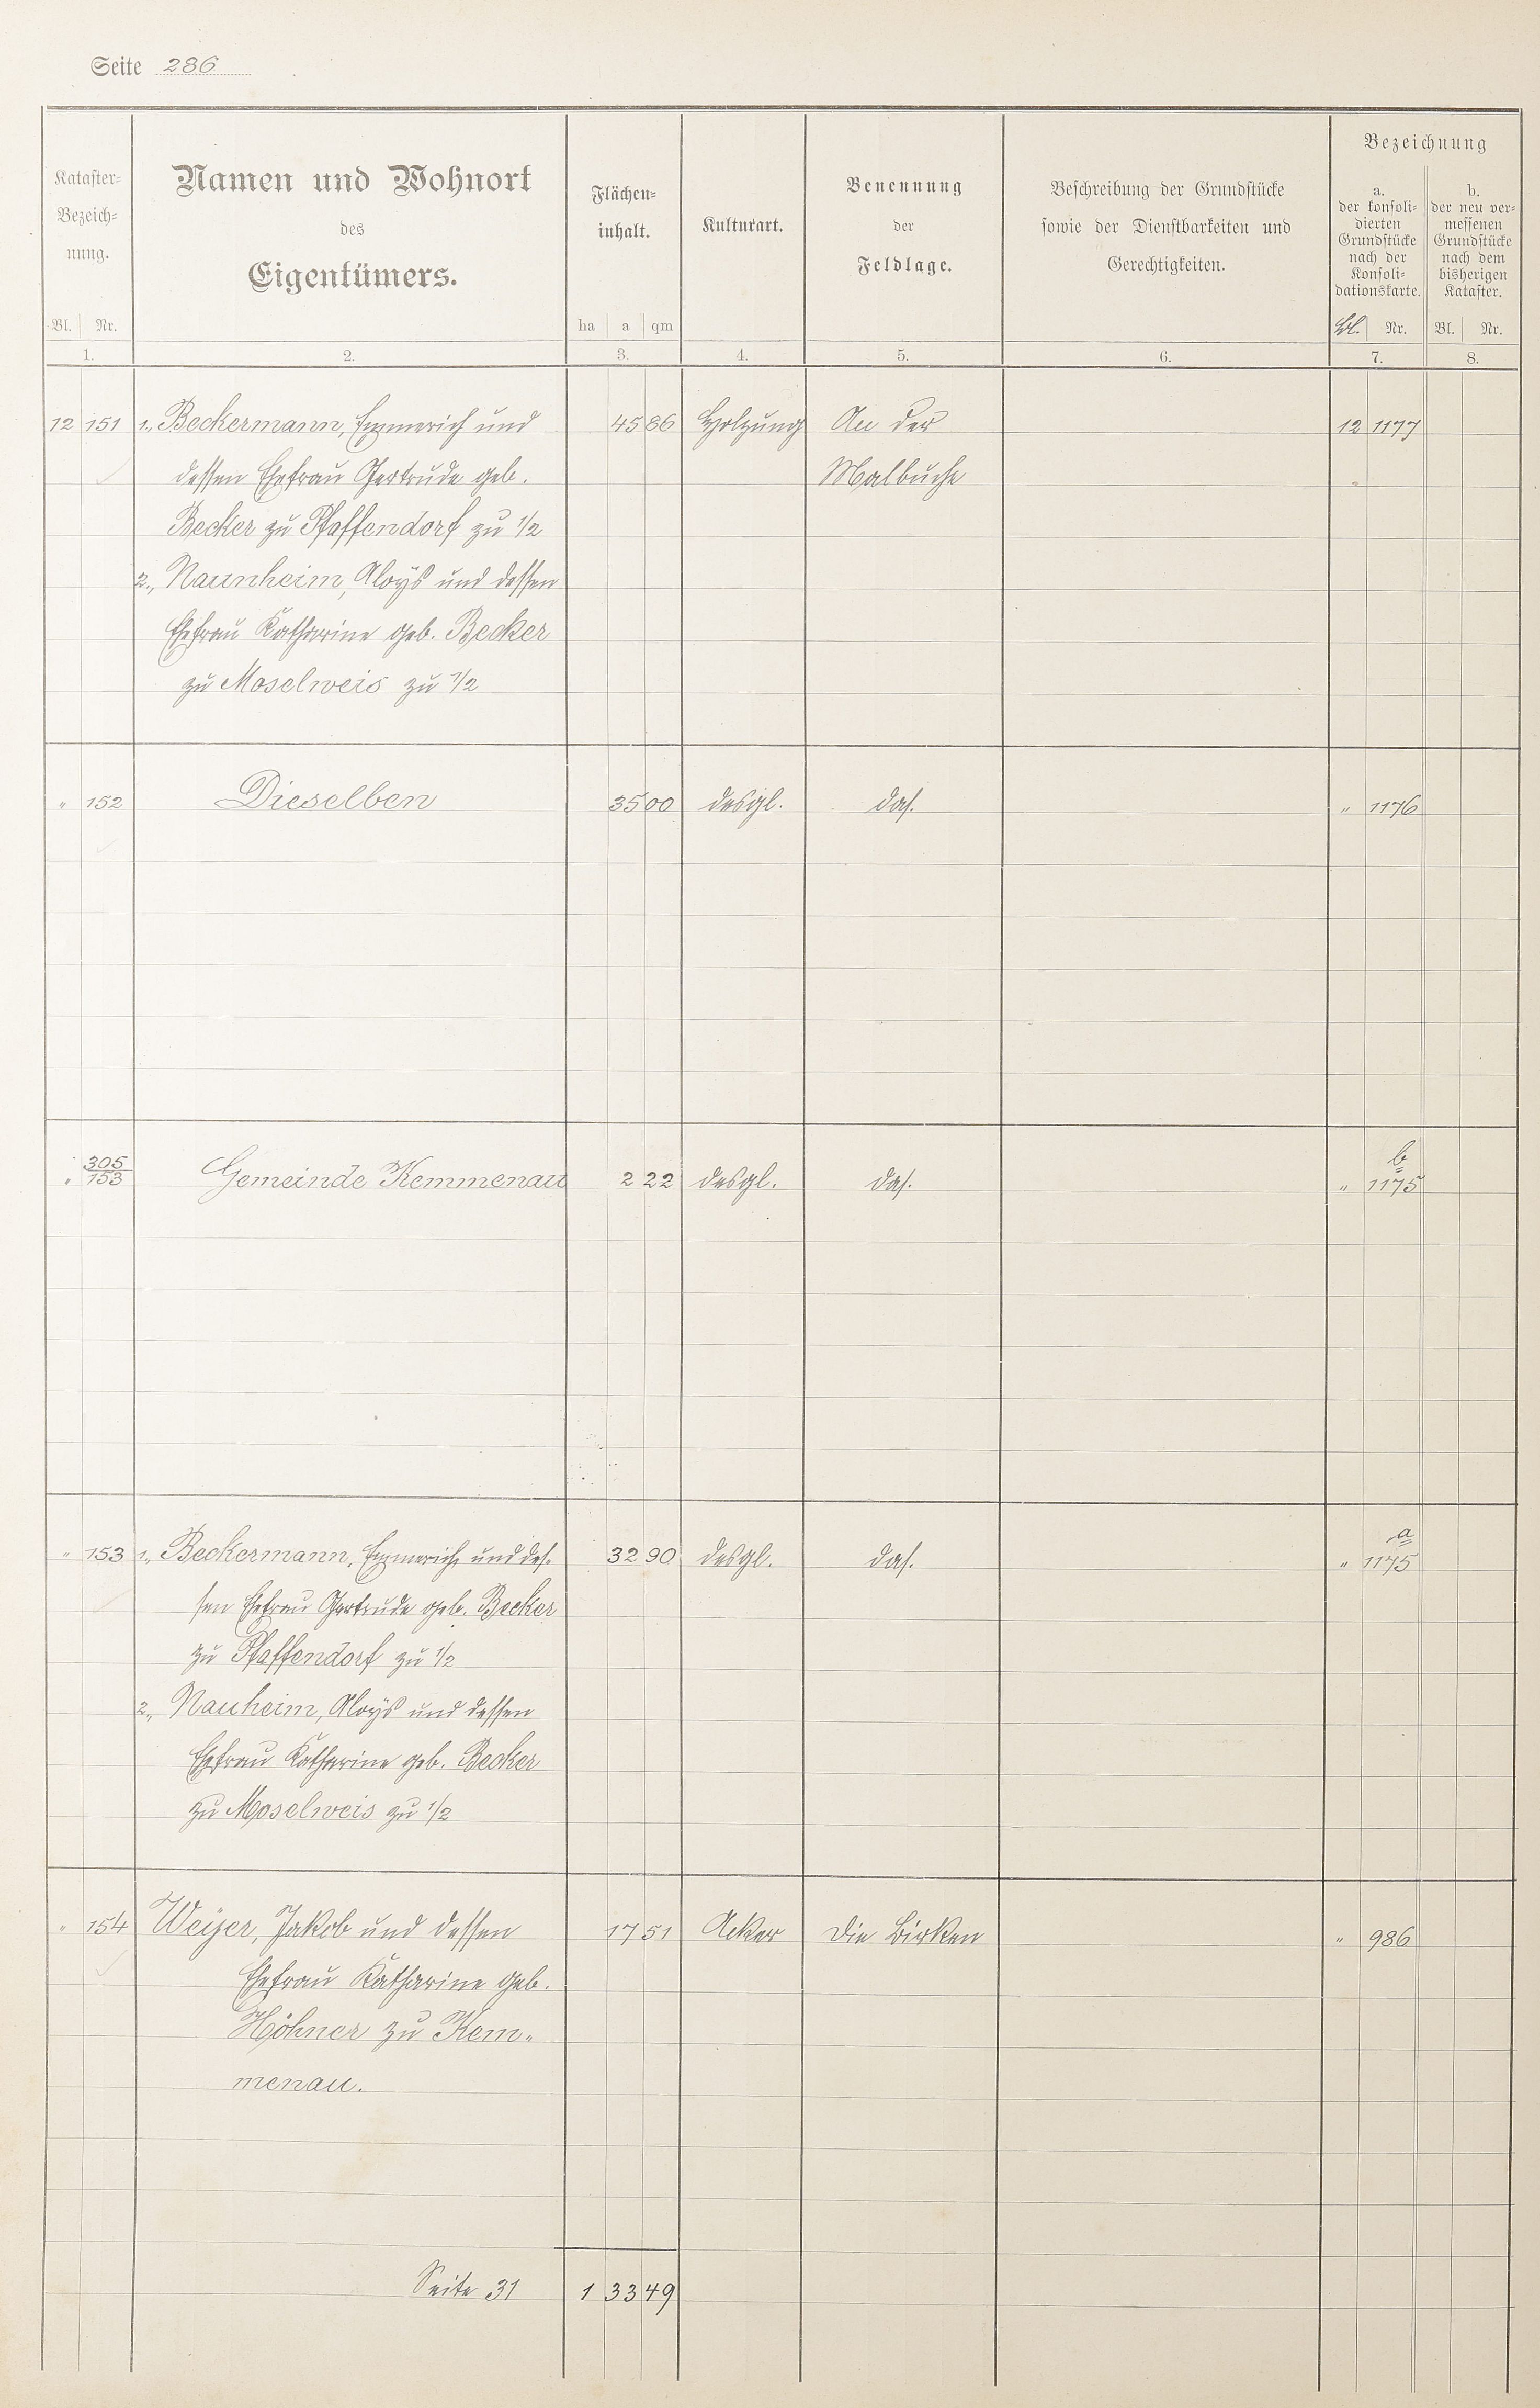 Seite 286
Kataster-
Bezeich-
nung.
Bl. Nr.
1.
Namen und Wohnort
des
Eigentümers.
2.
Flächen-
inhalt.
ha a qm
3.
Kulturart.
4.
Benennung
der
Feldlage.
5.
Beschreibung der Grundstücke
sowie der Dienstbarkeiten und
Gerechtigkeiten.
6.
Bezeichnung
a.
der konsoli-
dierten
Grundstücke
nach der
Konsoli-
dationskarte.
Bl. Nr.
7.
b.
der neu ver-
messenen
Grundstücke
nach dem
bisherigen
Kataster.
Bl. Nr.
8.
12 151 1., Beckermann, Emmerich und 45 86 Holzung An der 12 1177
dessen Ehefrau Gertrude geb. Malbuche
Becker zu Pfaffendorf zu 1/2
2., Naunheim, Aloÿs und dessen
Ehefrau Katharine geb. Becker
zu Moselweis zu 1/2
" 152 Dieselben 35 00 desgl. das. " 1176
" 305/153 Gemeinde Kemmenau 2 22 desgl. das. " b/1175
" 153 1., Beckermann, Emmerich und des- 32 90 desgl. das. " a/1175
sen Ehefrau Gertrude geb. Becker
zu Pfaffendorf zu 1/2
2., Nauheim, Aloÿs und dessen
Ehefrau Katharine geb. Becker
zu Moselweis zu 1/2
" 154 Weijer, Jakob und dessen 17 51 Acker Die Birken " 986
Ehefrau Katharine geb.
Höhner zu Kem-
menau.
Seite 31 1 33 49